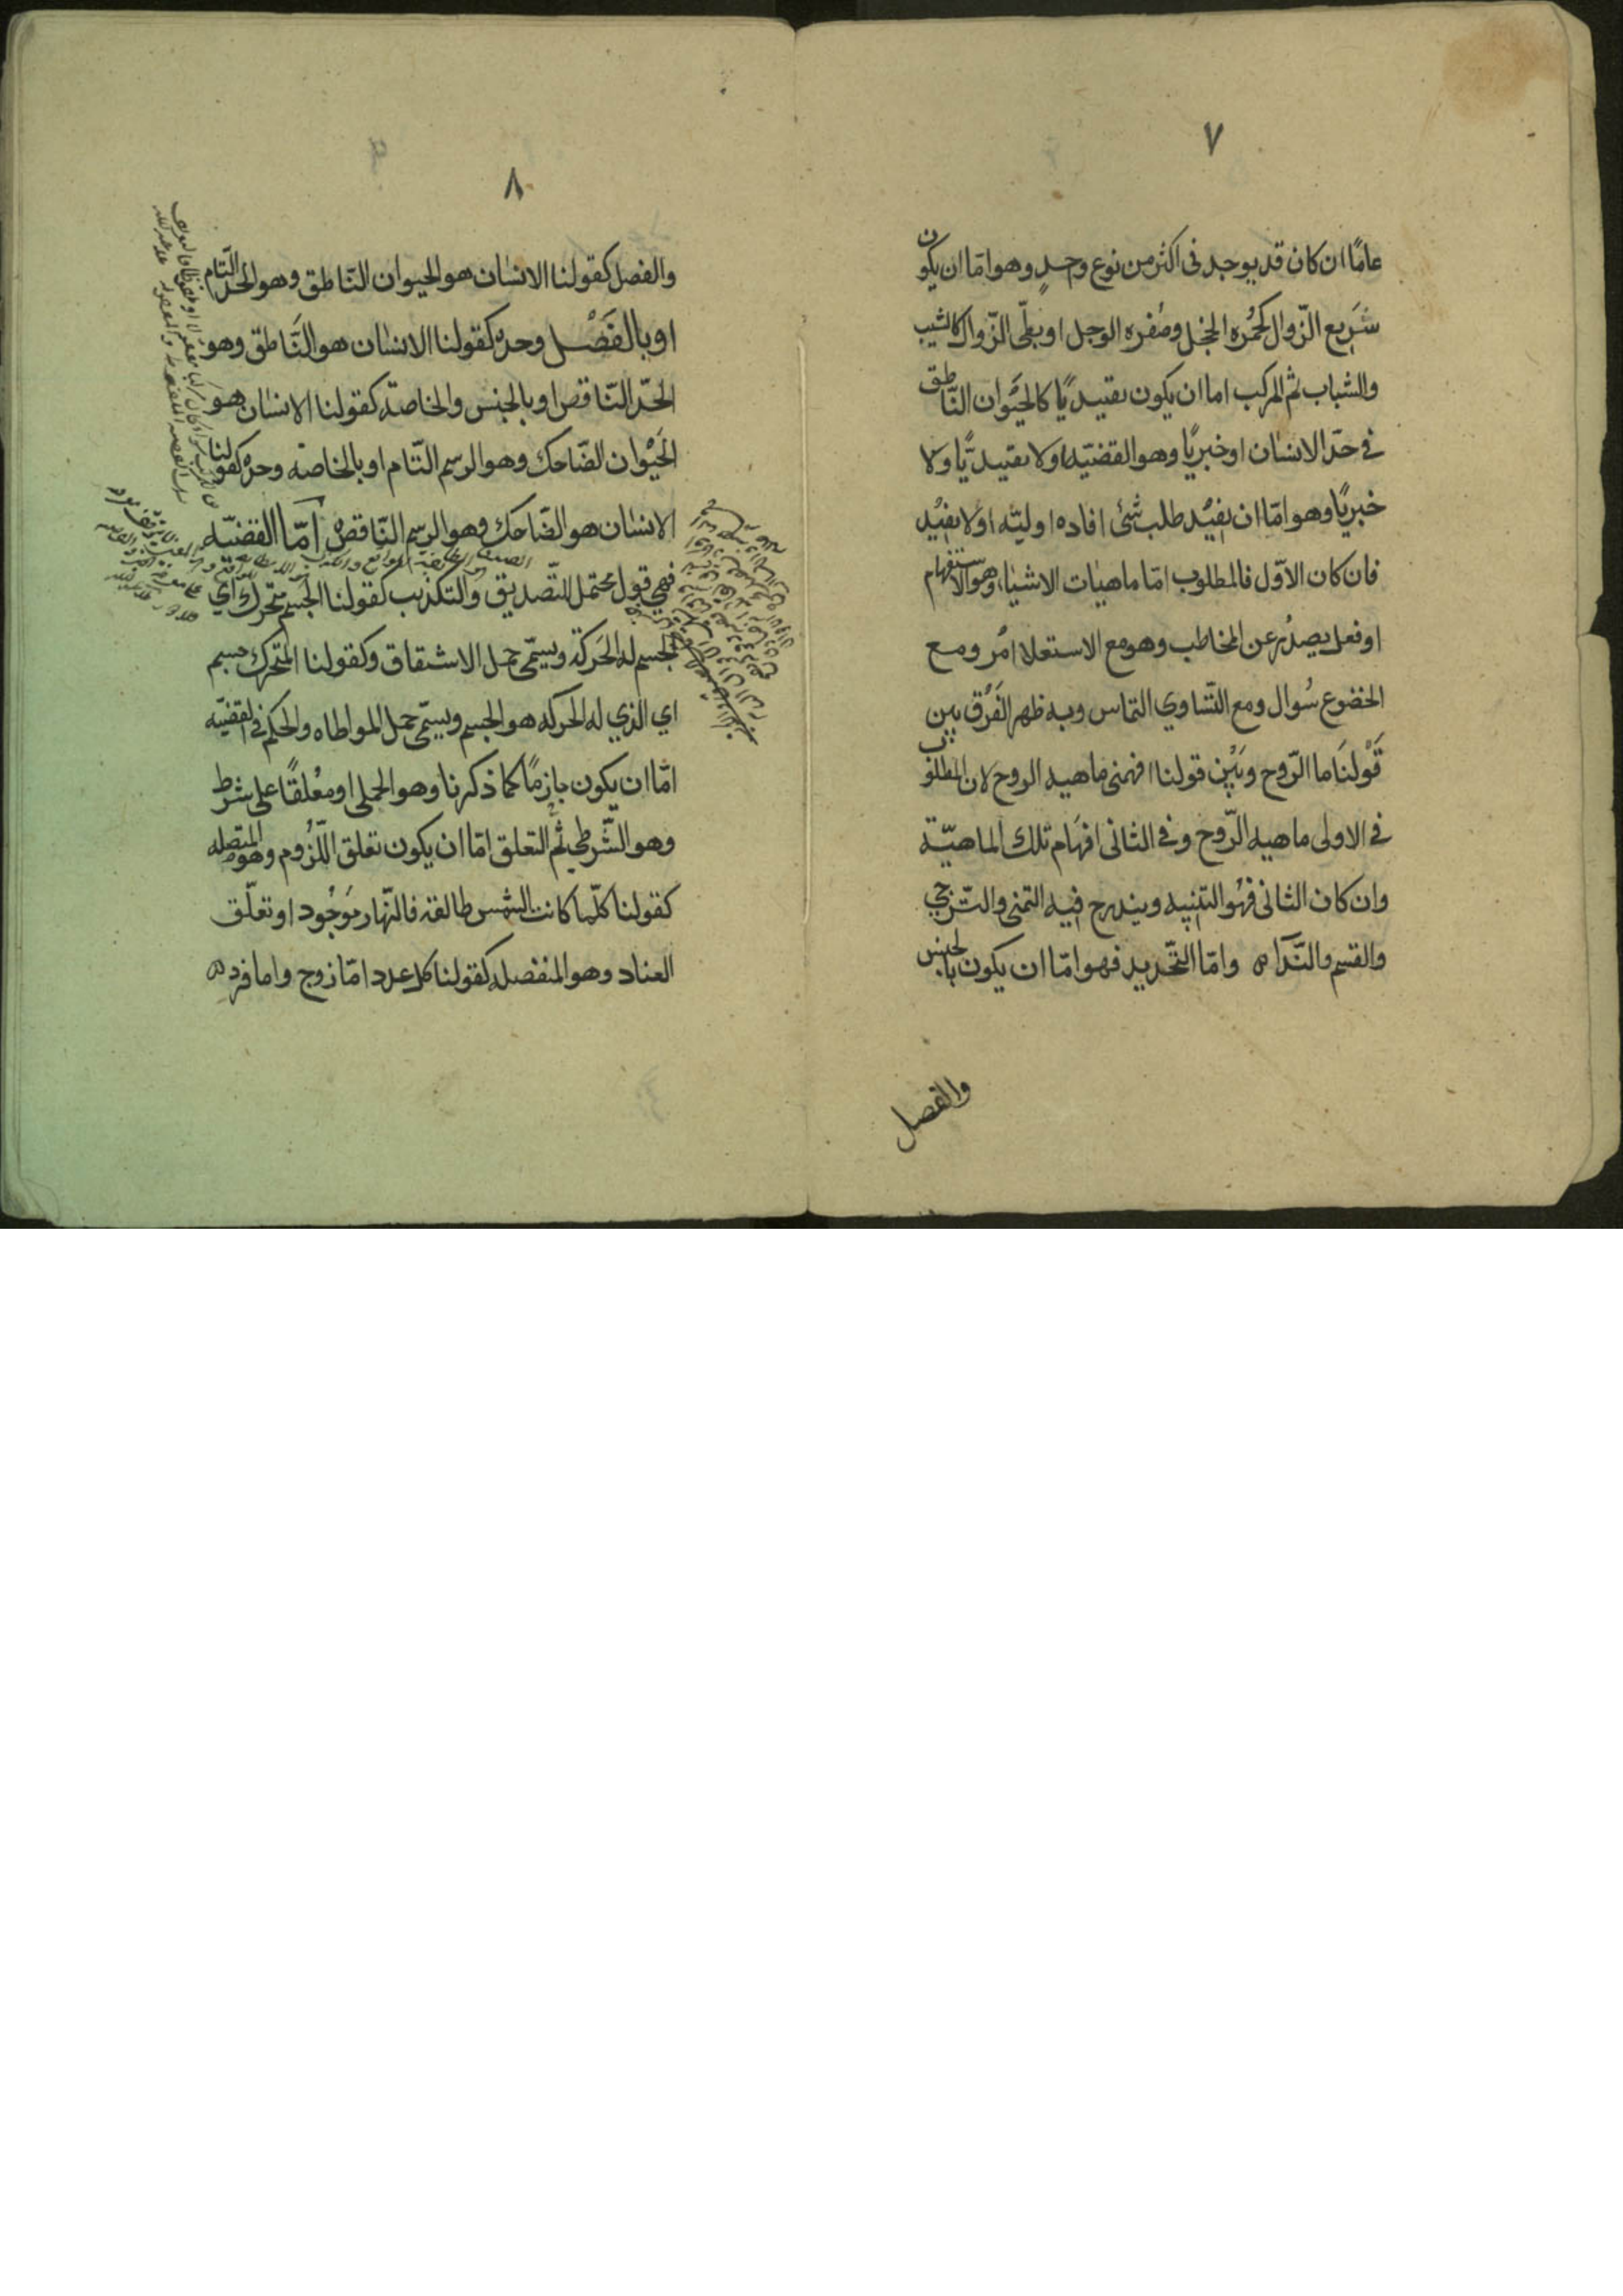 ٧
عامًا ان كان قد يوجد فى اكثر من نوع واحدٍ وهو امّا ان يكون
سَرِيع الزّوال كحُمْره الخجل وصُفره الوجل او بطىّ الزّوال كالشيب
والشباب ثم المركب اما ان يكون تقييديًا كالحَيَوان النّاطق
فى حدّ الانسٰان او خبريًا وهو القضيّه او لا تقييديًّا ولا
خبريًا وهو امّا ان يفيْد طلب شئ افاده اوليّه او لا يفيْد
فان كان الاوّل فالمطلوب امّا ماهيٰات الاشيٰا، وهو الاستفهام
او فعل يصدُر عن المخاطب وهو مع الاستعلا امْر ومع
الخضوع سُوال ومع التّساوي التماس وبه ظهر الفَرْق بين
قَوْلنَا ما الرّوح وبَيْن قولنا افهمنى ماهيه الروح لان المطلوب
فى الاولى ماهيه الرّوح وفى الثانى افهَام تلك الماهيّة
وان كان الثانى فهُو التنبيه ويندرج فيه التمنى والتّرجي
والقسم والنّدآ ه وامّا التّحديد فهو امّا ان يكون بالجنس
والفصل
٨
والفصل كقولنا الانسٰان هو الحيوان النّاطق وهو الحدّ التّام
او بالفَصْل وحده كقولنا الانسٰان هو النَّاطق وهو
الحّد النّاقص او بالجنس والخاصّة كقولنا الانسٰان هو
الحَيْوان الضّاحك وهو الرسم التّام او بالخاصّه وحده كقولنا
الانسٰان هو الضّاحك وهو الرسم النّاقص ه امّا القضيّه
فهي قول محتمل للتّصديق والتكذيب كقولنا الجْسم متحرك اي
الجسم له الحَركة ويسمّى حمل الاشتقاق وكقولنا المتحرك جسم
اي الذي له الحركه هو الجسم ويسمّى حمل المواطاه والحكم فى القضيّه
امّا ان يكون جازمًا كما ذكرنا وهو الحملى او مُعْلقًا على شرط
وهو الشّرطي ثم التعلق امّا ان يكون تعلق اللّزُوم وهو المتصله
كقولنا كلّما كانت الشمس طالعة فالنّهار مَوجُود او تعلّق
العناد وهو المنفصله كقولنا كل عدد امّا زوج واما فرد ه